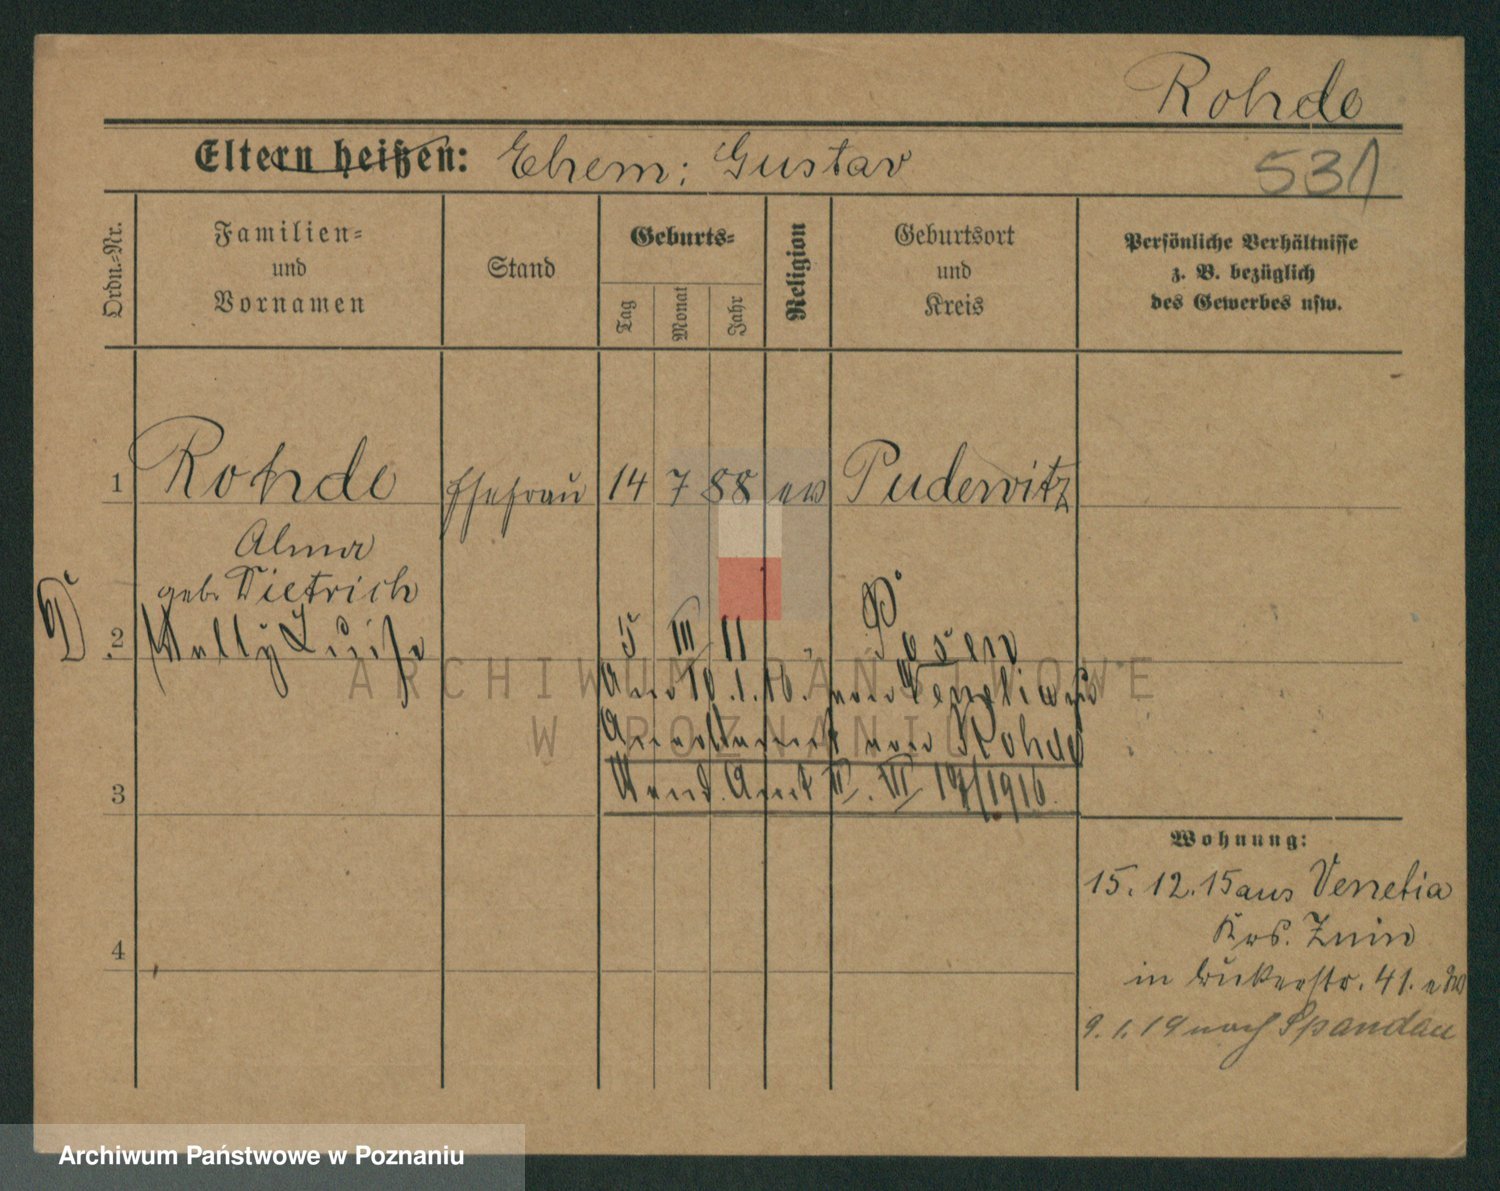 Rohde
Eltern heißen: Ehem: Gustav
531
Ordn.-Nr.
Familien- und Vornamen
Stand
Geburts-
Tag
Monat
Jahr
Religion
Geburtsort und Kreis
Persönliche Verhältnisse z. B. bezüglich des Gewerbes usw.
1 Rohde Ehefrau 14 7 88 ev Pudewitz
Alma
geb. Dietrich
2 Welly Luise 5 III 11 Posen
10.1.16. von
von Rohde
Amt VI 1916
3
Wohnung:
15. 12. 15 aus Venetia
Krs. Znin
4
in Bukerstr. 41.
9. 1. 19 nach Spandau
ARCHIWUM PAŃSTWOWE
W POZNANIU
Archiwum Państwowe w Poznaniu